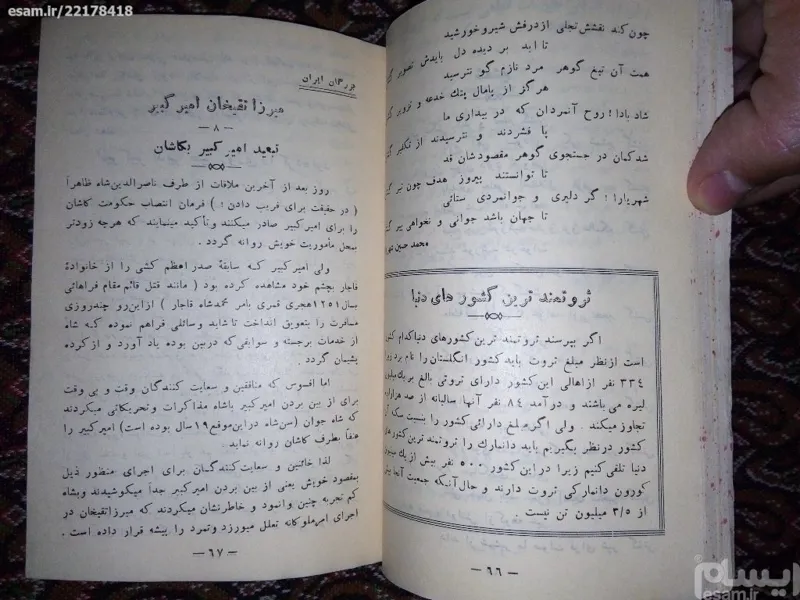 esam.ir/22178418
چون کند نقشش تجلی از درفش شیر و خورشید
تا ابد بر دیده دل بایدش تصویر
همت آن تیغ گوهر مرد تازم گو نترسید
هرگز از پامال پتک خدعه و تزویر
شاد بادا! روح آنمردان که در بیداری ما
پا فشردند و نترسیدند از تکفیر
شدکمان در جستجوی گوهر مقصودشان قد
تا توانستند پیروز هدف چون تیر
شهریارا! گر دلیری و جوانمردی ستائی
تا جهان باشد جوانی و نخواهی پیر
محمد حسین
ثروتمند ترین کشور های دنیا
اگر بپرسند ثروتمند ترین کشورهای دنیا کدام
است از نظر مبلغ ثروت باید کشور انگلستان را نام برد
۳۳۴ نفر از اهالی این کشور دارای ثروتی بالغ بر یک
لیره می باشند و درآمد ۸۴ نفر آنها سالیانه از صد هزار
تجاوز میکند . ولی اگر مبلغ دارائی کشور را بنسبت سکنه آن
کشور در نظر بگیریم باید دانمارک را ثروتمند ترین کشور
دنیا تلقی کنیم زیرا در این کشور ۵۰۰ نفر بیش از یک
کورون دانمارکی ثروت دارند و حال آنکه جمعیت آنجا
از ۳/۵ میلیون تن نیست .
-۶۶-
بزرگان ایران
میرزا تقیخان امیر کبیر
-۸-
تبعید امیر کبیر بکاشان
روز بعد از آخرین ملاقات از طرف ناصرالدین‌شاه ظاهراً
( در حقیقت برای فریب دادن ! ) فرمان انتصاب حکومت کاشان
را برای امیر کبیر صادر میکنند و تأکید مینمایند که هرچه زودتر
بمحل مأموریت خویش روانه گردد .
ولی امیر کبیر که سابقهٔ صدراعظم کشی را از خانوادهٔ
قاجار بچشم خود مشاهده کرده بود ( مانند قتل قائم مقام فراهانی
بسال ۱۲۵۱ هجری قمری بامر محمدشاه قاجار ) از این‌رو چندروزی
مسافرت را بتعویق انداخت تا شاید وسائلی فراهم نموده که شاه
از خدمات برجسته و سوابقی که در بین بوده یاد آورد و از کرده
پشیمان گردد .
اما افسوس که منافقین و سعایت کنندگان وقت و بی وقت
برای از بین بردن امیر کبیر باشاه مذاکرات و تحریکاتی میکردند
که شاه جوان ( سن شاه در این موقع ۱۹ سال بوده است ) امیر کبیر را
عنفاً بطرف کاشان روانه نماید .
لذا خائنین و سعایت‌کنندگان برای اجرای منظور ذیل
بمقصود خویش یعنی از بین بردن امیر کبیر جداً میکوشیدند و بشاه
کم تجربه چنین وانمود و خاطرنشان میکردند که میرزا تقیخان در
اجرای امر ملوکانه تعلل میورزد و تمرد را پیشه قرار داده است .
-۶۷-
ایسام
esam.ir